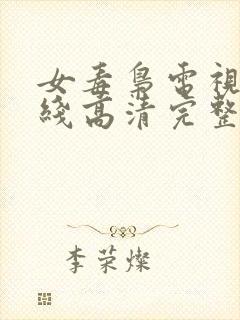 女毒梟電視
綫高清完整
李荣燦